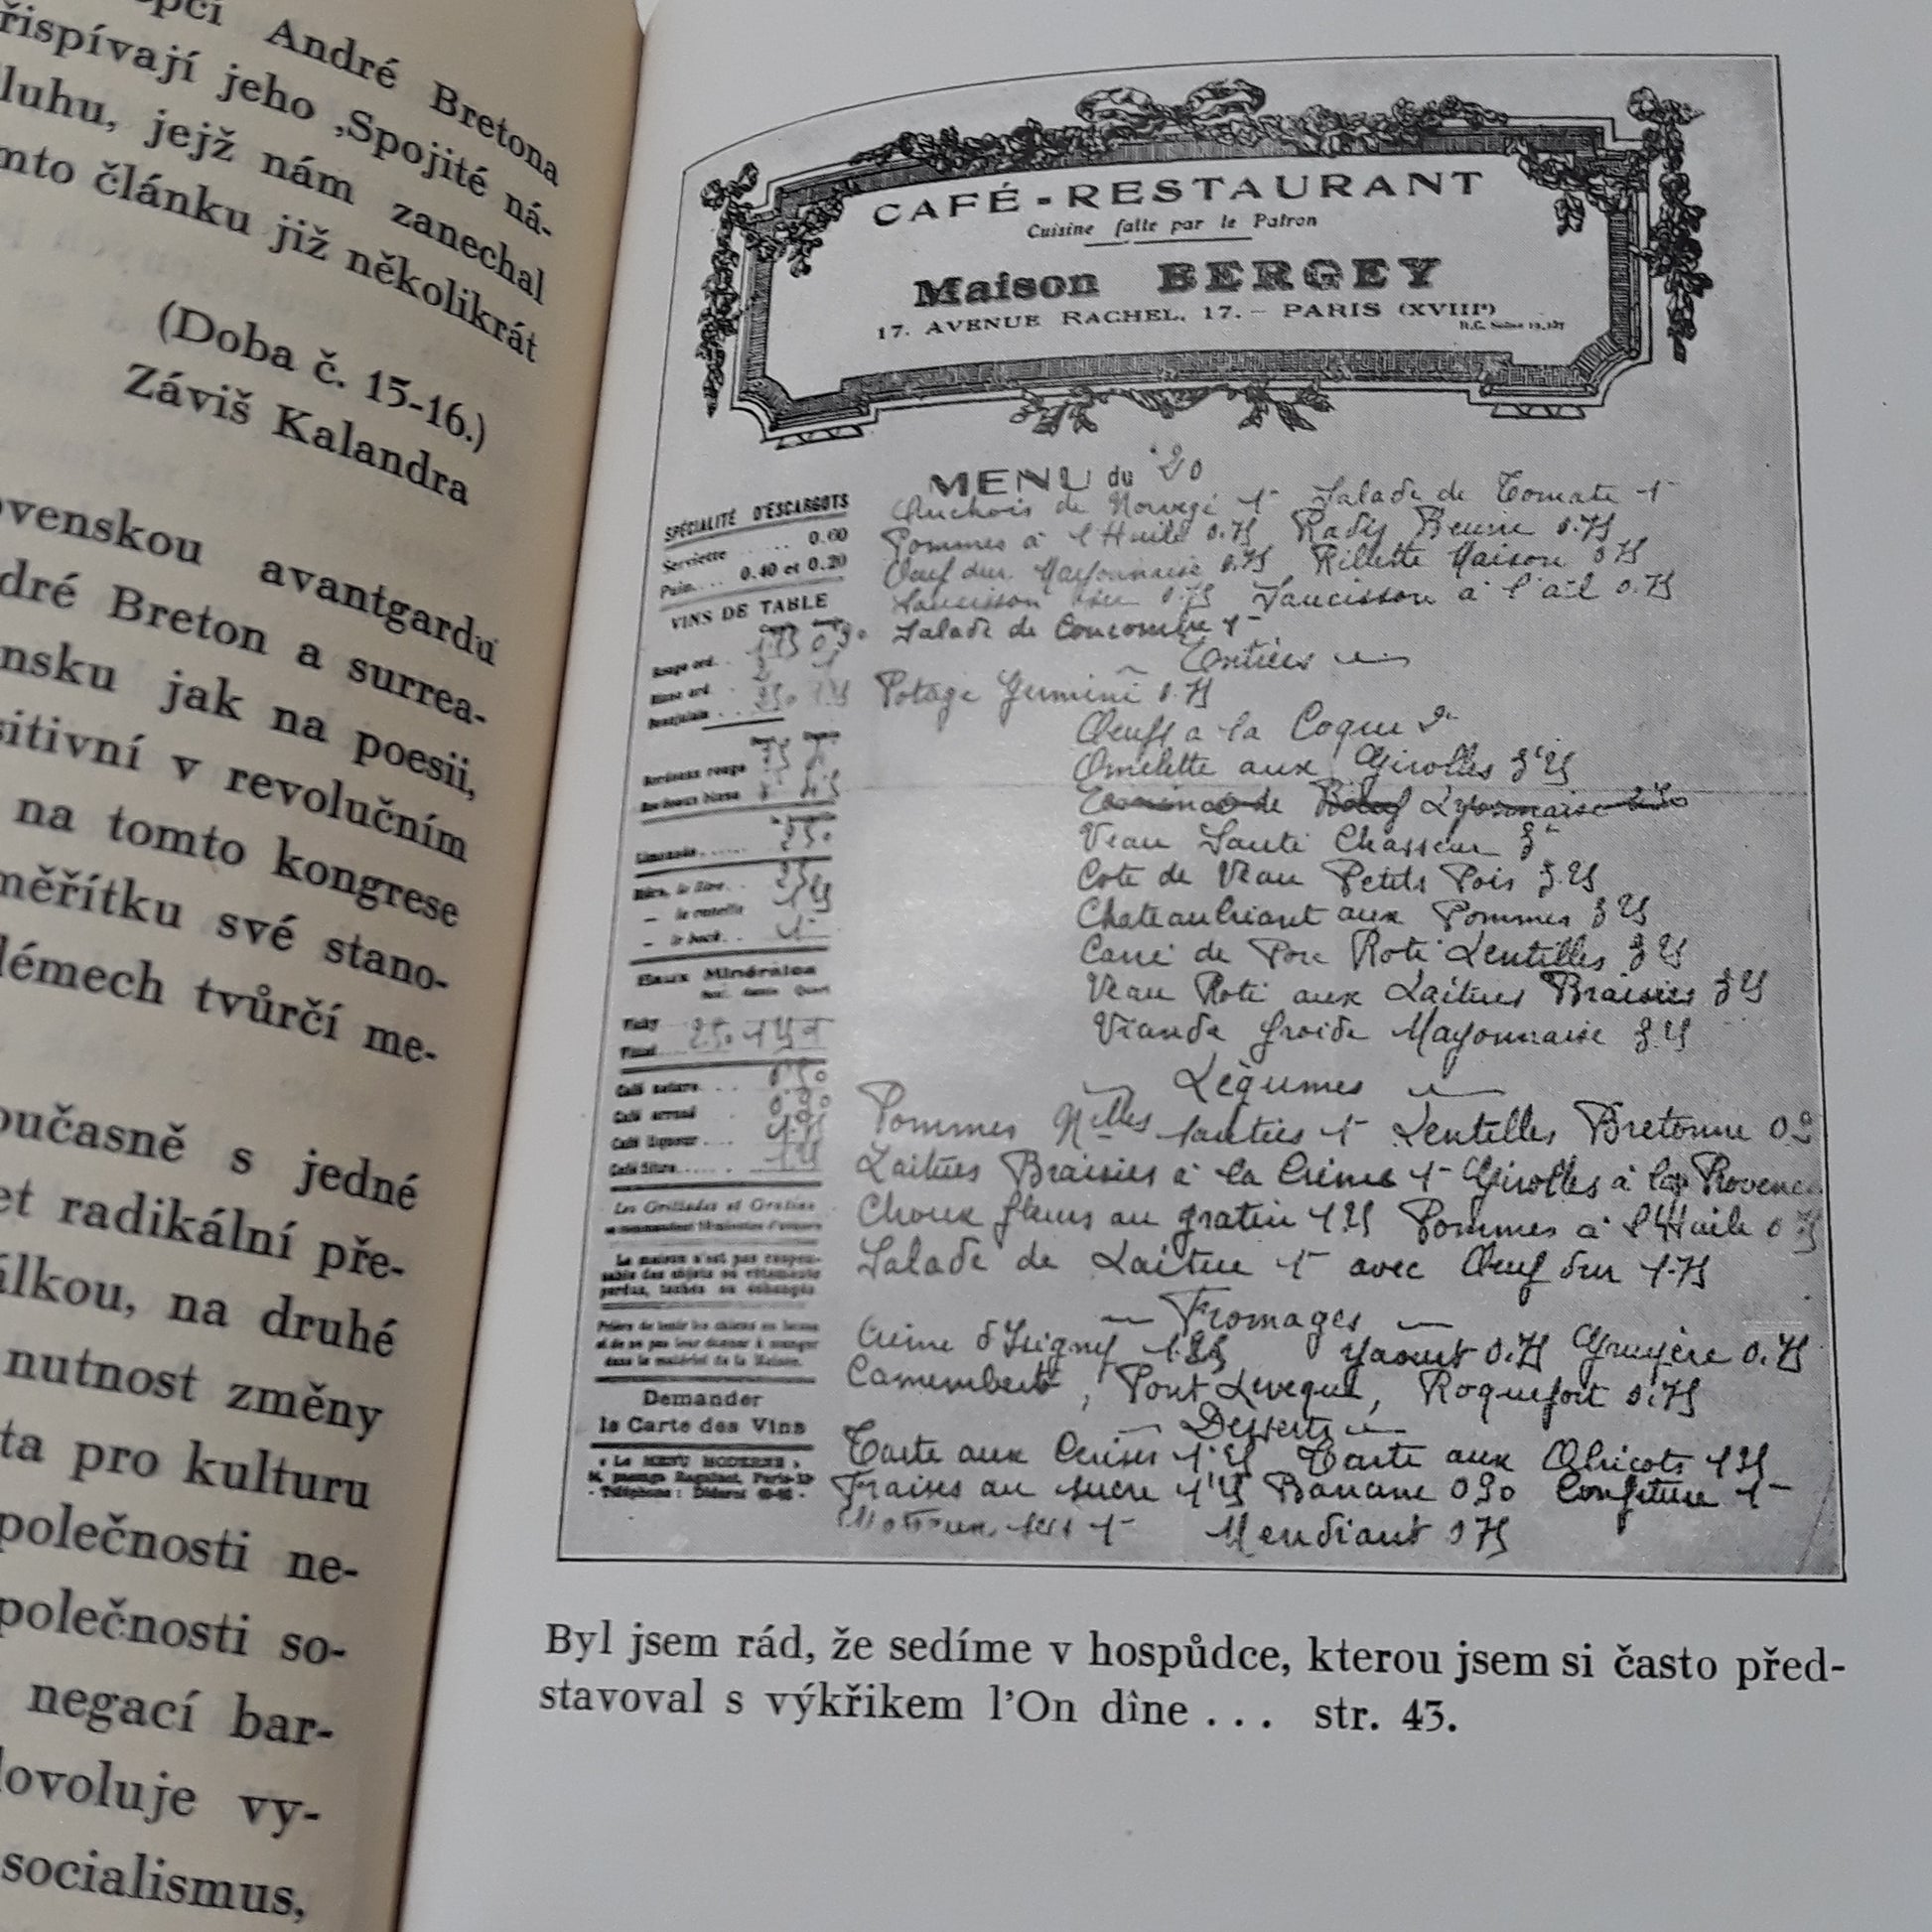 André Bretona
řispívají jeho ‚Spojité ná-
luhu, jejž nám zanechal
mto článku již několikrát
(Doba č. 15-16.)
Záviš Kalandra
ovenskou avantgardu
dré Breton a surrea-
nsku jak na poesii,
sitivní v revolučním
na tomto kongrese
měřítku své stano-
lémech tvůrčí me-
oučasně s jedné
et radikální pře-
álkou, na druhé
nutnost změny
ta pro kulturu
polečnosti ne-
polečnosti so-
negací bar-
dovoluje vy-
socialismus,
CAFÉ-RESTAURANT
Cuisine faite par le Patron
Maison BERGEY
17. AVENUE RACHEL, 17. – PARIS (XVIIIᵉ)
R.C. Seine
MENU du 20
SPÉCIALITÉ D'ESCARGOTS
Serviette ...... 0.60
Pain.... 0.40 et 0.20
VINS DE TABLE
Rouge ord. ..
Blanc ord. .
Beaujolais ..
Bordeaux rouge
Bordeaux blanc
Limonade......
Bière, le litre..
– la canette
– le bock..
Eaux Minérales
Vichy
Vittel
Café nature....
Café arrosé
Café liqueur....
Café filtre......
Les Grillades et Gratins
La maison n'est pas respon-
sable des objets ou vêtements
perdus, tachés ou échangés
Prière de tenir les chiens en laisse
et de ne pas leur donner à manger
dans le matériel de la Maison.
Demander
la Carte des Vins
« Le MENU MODERNE »
Anchois de Norvège 1- Salade de Tomate 1-
Pommes à l'Huile 0.75 Radis Beurre 0.75
Oeuf dur Mayonnaise 0.75 Rillette Maison 0 75
Saucisson sec 0.75 Saucisson à l'ail 0.75
Salade de Concombre 1-
Entrées
Potage Germini 0.75
Oeufs a la Coque 2-
Omelette aux Girolles 3'25
Emincé de Boeuf Lyonnaise
Veau Sauté Chasseur 3-
Cote de Veau Petits Pois 3.25
Chateaubriant aux Pommes 3 25
Carré de Porc Roti Lentilles 3 25
Veau Roti aux Laitues Braisées 3 25
Viande froide Mayonnaise 3.25
Légumes
Pommes Nlles sautées 1- Lentilles Bretonne 0 9
Laitues Braisées à la Crème 1- Girolles à la Provenc
Choux fleurs au gratin 1 25 Pommes à l'Huile 0 75
Salade de Laitue 1- avec Oeuf dur 1.75
Fromages
Crème d'Isigny 1.25 Yaourt 0.75 Gruyère 0.75
Camembert, Pont Leveque, Roquefort 0.75
Desserts
Tarte aux Cerises 1'25 Tarte aux Abricots 1 25
Fraises au sucre 1'25 Banane 0 90 Confiture 1-
Mendiant 0 75
Byl jsem rád, že sedíme v hospůdce, kterou jsem si často před-
stavoval s výkřikem l'On dîne ... str. 43.